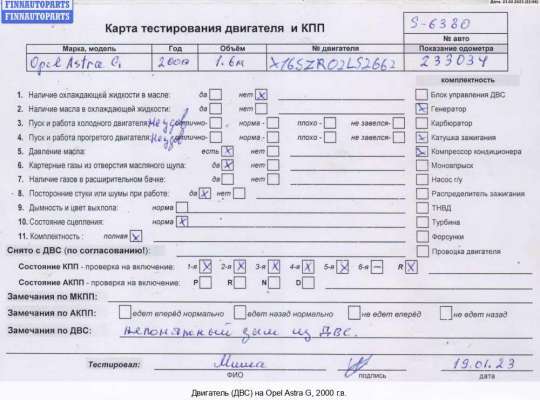 FINNAUTOPARTS
FINNAUTOPARTS
Карта тестирования двигателя и КПП
S-6380
№ авто
Марка, модель Год Объём № двигателя Показание одометра
Opel Astra G 2000 1.6м X16SZR02L52662 233034
комплектность
1. Наличие охлаждающей жидкости в масле: да нет x Блок управления ДВС
2. Наличие масла в охлаждающей жидкости: да нет Генератор
3. Пуск и работа холодного двигателя: отлично- норма - плохо - не завелся- Карбюратор
4. Пуск и работа прогретого двигателя: отлично- норма - плохо - не завелся- Катушка зажигания
5. Давление масла: есть x нет Компрессор кондиционера
6. Картерные газы из отверстия масляного щупа: да x нет Моновпрыск
7. Наличие газов в расширительном бачке: да нет Насос г/у
8. Посторонние стуки или шумы при работе: да x нет Распределитель зажигания
9. Дымность и цвет выхлопа: норма ТНВД
10. Состояние сцепления: норма x Турбина
11. Комплектность : полная x Форсунки
Снято с ДВС (по согласованию!): Проводка двигателя
Состояние КПП - проверка на включение: 1-я x 2-я x 3-я x 4-я x 5-я x 6-я — R x
Состояние АКПП - проверка на включение: P R N D
Замечания по МКПП:
Замечания по АКПП: едет вперёд нормально едет назад нормально не едет вперёд не едет назад
Замечания по ДВС: непонятный дым из ДВС.
Тестировал: Миша 19.01.23
ФИО подпись дата
Двигатель (ДВС) на Opel Astra G, 2000 г.в.